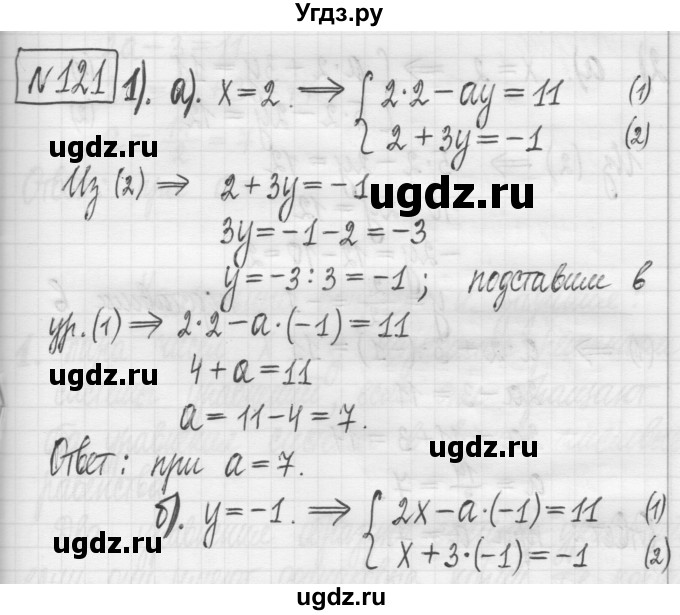 Угдз.ру
№121 1). а). x=2. ⟹ { 2·2−ay=11 (1)
2+3y=−1 (2)
ugdz.ru
Из (2) ⟹ 2+3y=−1
ugdz.ru
3y=−1−2=−3
y=−3:3=−1; подставим в
ур.(1) ⟹ 2·2−a·(−1)=11
ugdz.ru
4+a=11
a=11−4=7.
ugdz.ru
Ответ: при a=7.
б). y=−1. ⟹ { 2x−a·(−1)=11 (1)
ugdz.ru
ugdz.ru
x+3·(−1)=−1 (2)
ugdz.ru